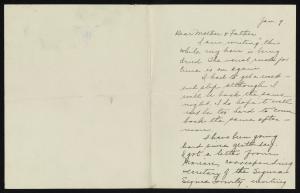 Jan 9
Dear Mother & Father,
I am writing this
while my hair is being
dried. The usual rush for
time is on again.
I had to get a week-
end slip although I
will be back the same
night. I do hope it will
not be too hard to come
back the same after-
noon.
I have been going
hard since yesterday.
I got a letter from
corresponding
secretary of the Sigma
Sigma Society inviting